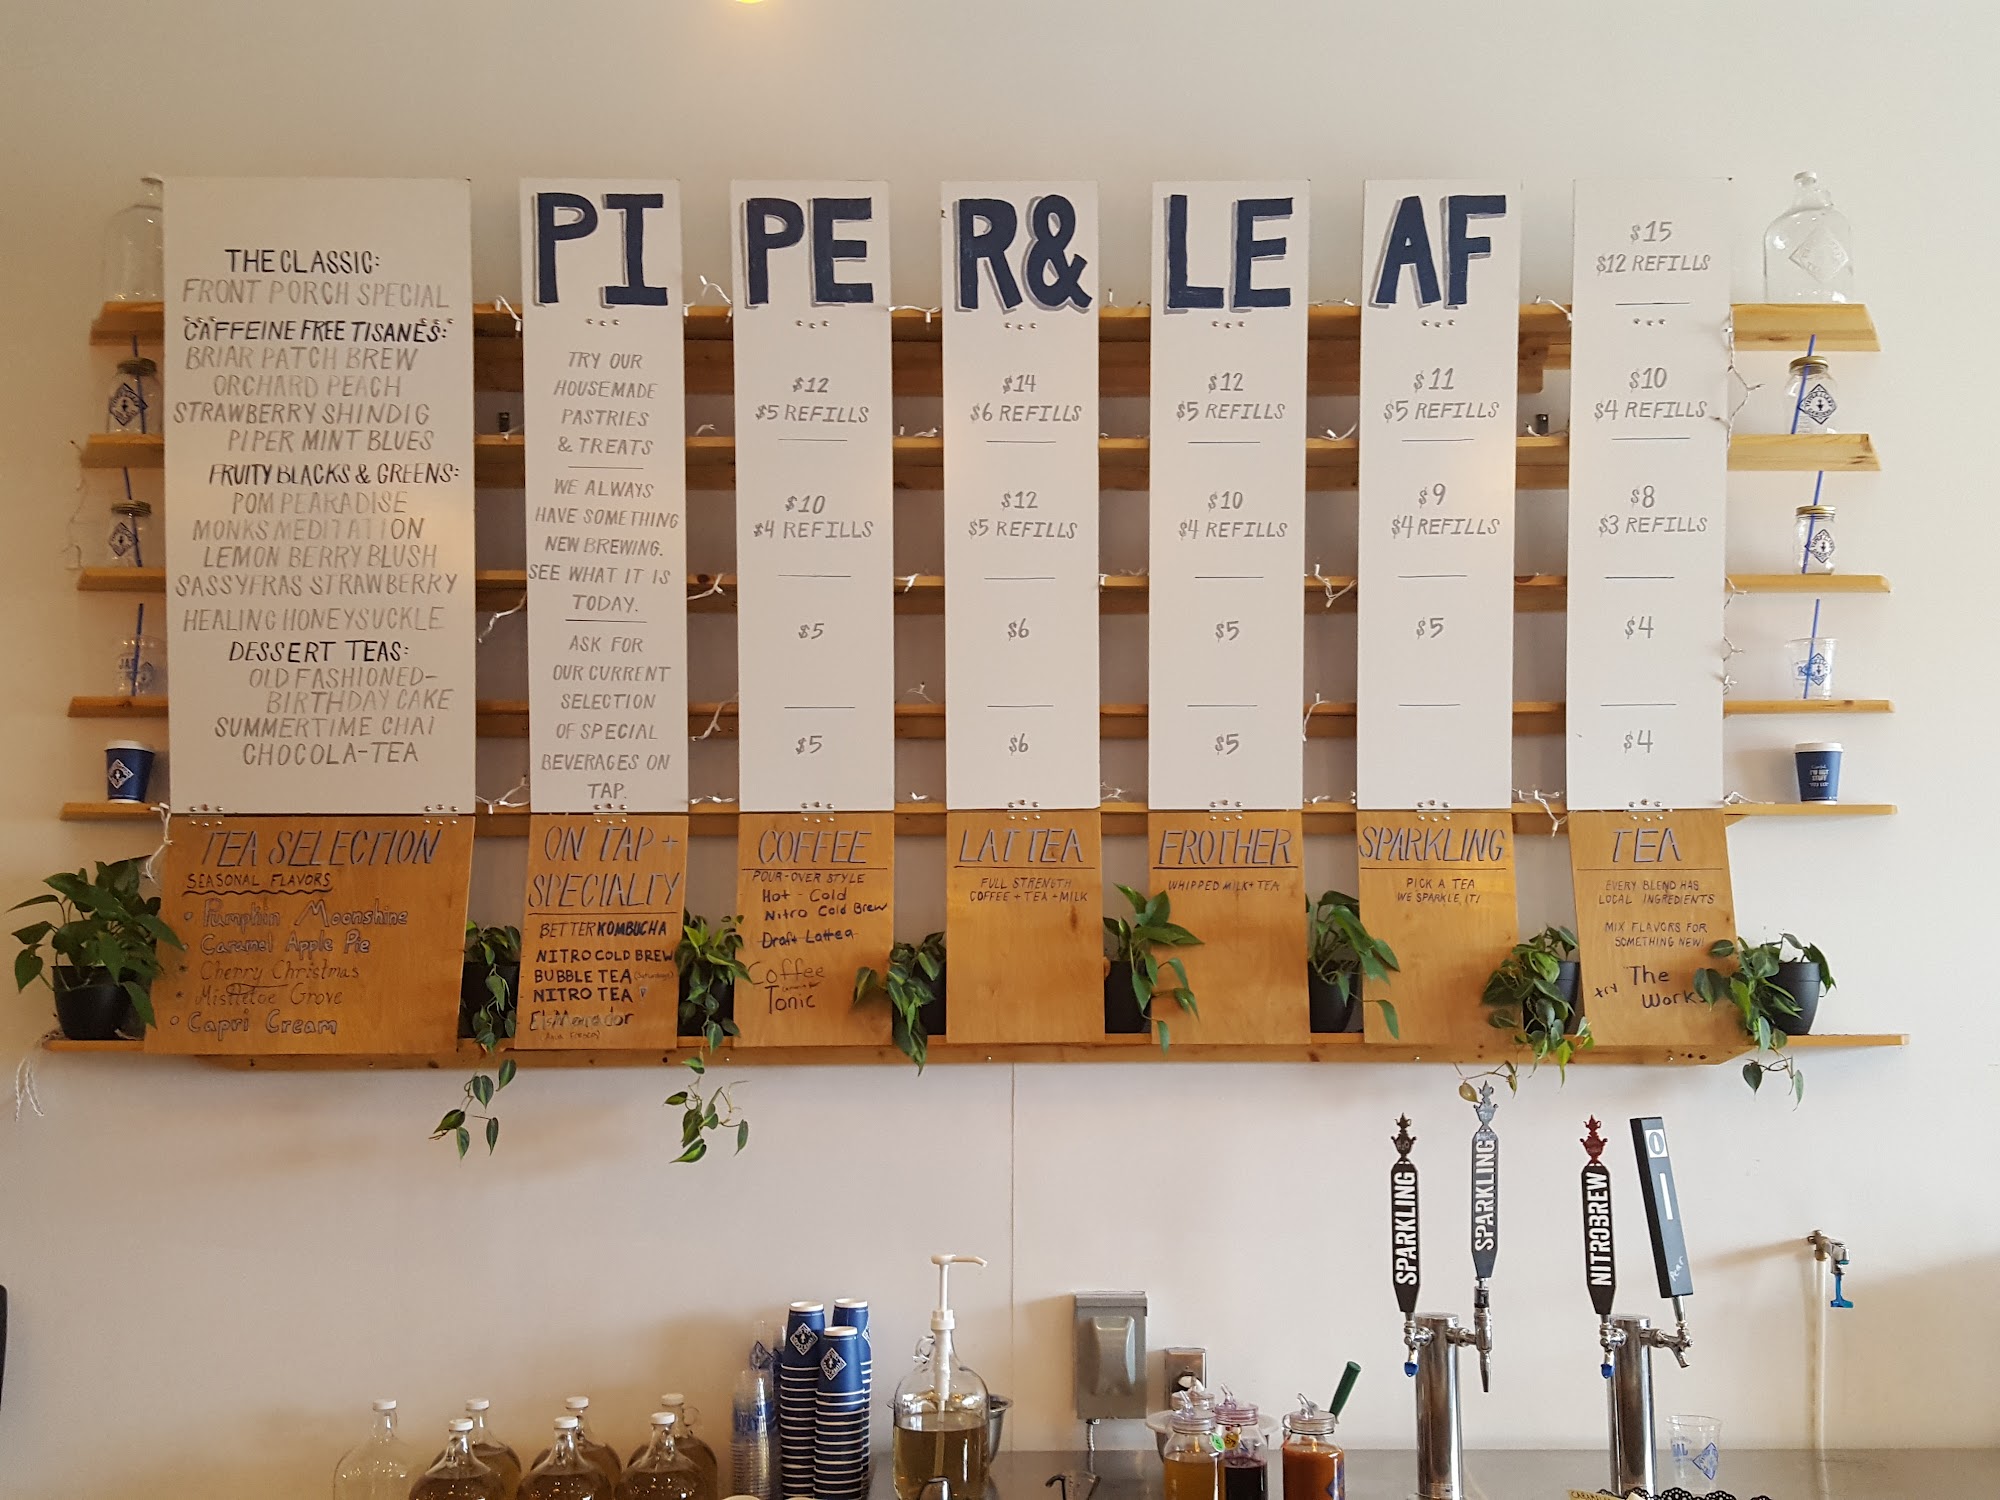 THE CLASSIC:
FRONT PORCH SPECIAL
CAFFEINE FREE TISANES:
BRIAR PATCH BREW
ORCHARD PEACH
STRAWBERRY SHINDIG
PIPER MINT BLUES
FRUITY BLACKS & GREENS:
POM PEARADISE
MONKS MEDITATION
LEMON BERRY BLUSH
SASSYFRAS STRAWBERRY
HEALING HONEYSUCKLE
DESSERT TEAS:
OLD FASHIONED-
BIRTHDAY CAKE
SUMMERTIME CHAI
CHOCOLA-TEA
TEA SELECTION
SEASONAL FLAVORS
• Pumpkin Moonshine
• Caramel Apple Pie
• Cherry Christmas
• Mistletoe Grove
• Capri Cream
PIPER & LEAF
TRY OUR
HOUSEMADE
PASTRIES
& TREATS
WE ALWAYS
HAVE SOMETHING
NEW BREWING.
SEE WHAT IT IS
TODAY.
ASK FOR
OUR CURRENT
SELECTION
OF SPECIAL
BEVERAGES ON
TAP.
ON TAP +
SPECIALTY
BETTER KOMBUCHA
NITRO COLD BREW
BUBBLE TEA
NITRO TEA
$12
$5 REFILLS
$10
$4 REFILLS
$5
$5
COFFEE
POUR-OVER STYLE
Hot - Cold
Nitro Cold Brew
Draft Lattea
Coffee
Tonic
$14
$6 REFILLS
$12
$5 REFILLS
$6
$6
LATTEA
FULL STRENGTH
COFFEE + TEA + MILK
$12
$5 REFILLS
$10
$4 REFILLS
$5
$5
FROTHER
WHIPPED MILK + TEA
$11
$5 REFILLS
$9
$4 REFILLS
$5
SPARKLING
PICK A TEA
WE SPARKLE IT!
$15
$12 REFILLS
$10
$4 REFILLS
$8
$3 REFILLS
$4
$4
TEA
EVERY BLEND HAS
LOCAL INGREDIENTS
MIX FLAVORS FOR
SOMETHING NEW!
try The
Works
SPARKLING
SPARKLING
NITROBREW
Pear